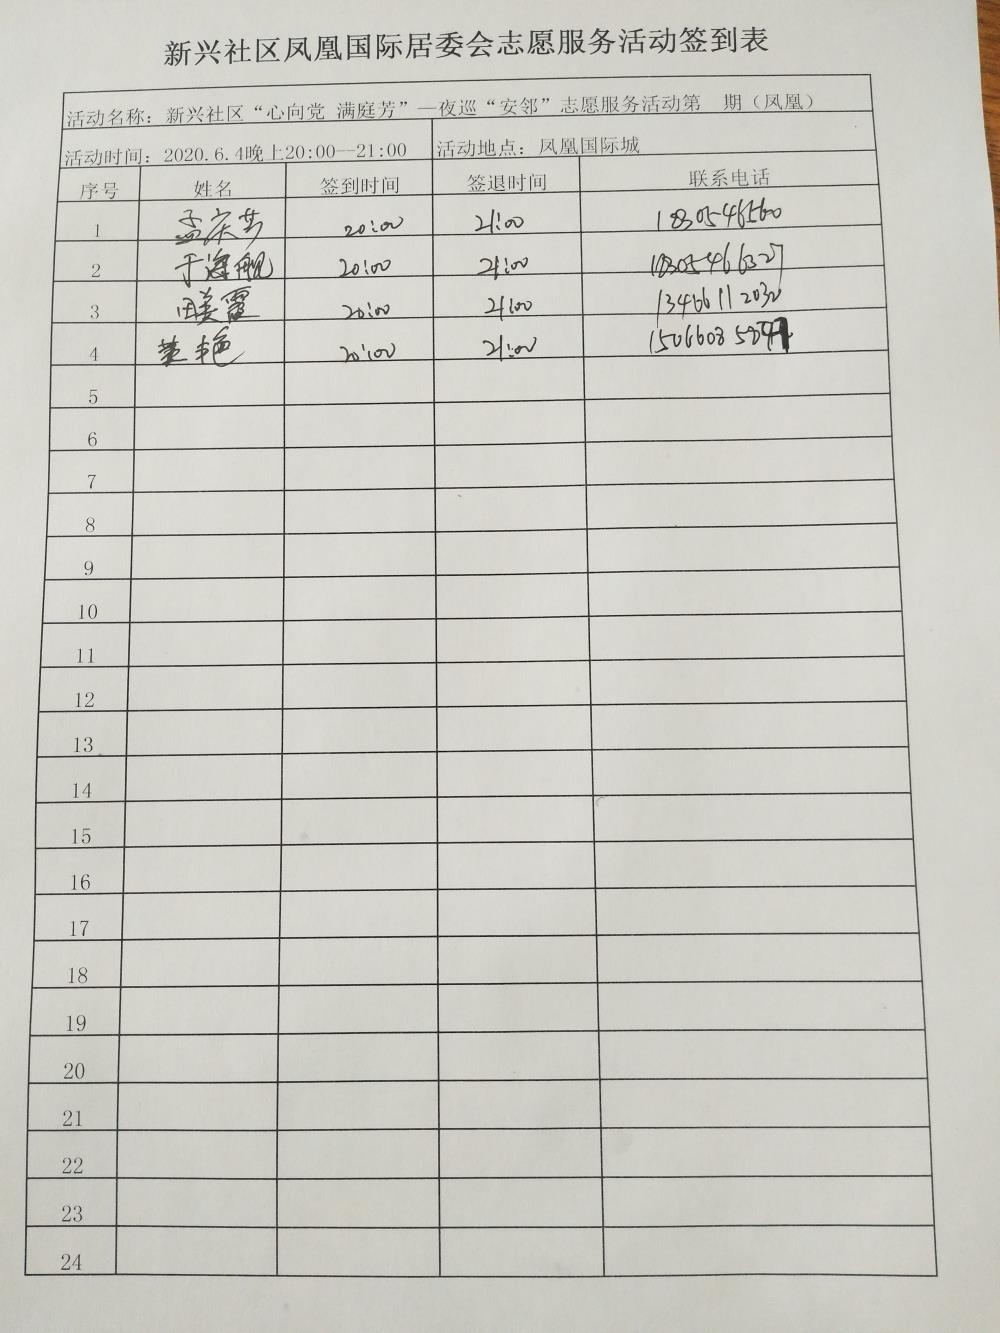 新兴社区凤凰国际居委会志愿服务活动签到表
活动名称：新兴社区“心向党 满庭芳”—夜巡“安邻”志愿服务活动第　期（凤凰）
活动时间：2020.6.4晚上20:00—21:00 活动地点：凤凰国际城
序号 姓名 签到时间 签退时间 联系电话
1 孟庆芳 20:00 21:00 1830546560
2 于海舰 20:00 21:00 18305466327
3 田美霞 20:00 21:00 13466112032
4 20:00 21:00
5
6
7
8
9
10
11
12
13
14
15
16
17
18
19
20
21
22
23
24